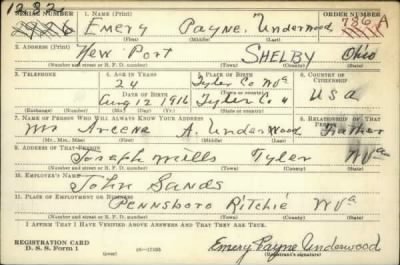 SERIAL NUMBER 1. NAME (Print) ORDER NUMBER
Emery Payne Underwood 786 A
(First) (Middle) (Last)
2. ADDRESS (Print)
New Port SHELBY Ohio
(Number and street or R. F. D. number) (Town) (County) (State)
3. TELEPHONE 4. AGE IN YEARS 5. PLACE OF BIRTH 6. COUNTRY OF CITIZENSHIP
24 Tyler Co WVa
DATE OF BIRTH
Aug 12 1916 Tyler Co USA
(Exchange) (Number) (Mo.) (Day) (Yr.) (State or country)
7. NAME OF PERSON WHO WILL ALWAYS KNOW YOUR ADDRESS 8. RELATIONSHIP OF THAT PERSON
Mr A. Underwood Father
(Mr., Mrs., Miss) (First) (Middle) (Last)
9. ADDRESS OF THAT PERSON
Joseph Mills Tyler WVa
(Number and street or R. F. D. number) (Town) (County) (State)
10. EMPLOYER'S NAME
John Sands
11. PLACE OF EMPLOYMENT OR BUSINESS
Pennsboro Ritchie WVa
(Number and street or R. F. D. number) (Town) (County) (State)
I AFFIRM THAT I HAVE VERIFIED ABOVE ANSWERS AND THAT THEY ARE TRUE.
REGISTRATION CARD
D. S. S. Form 1 (over) Emery Payne Underwood
(Registrant's signature)